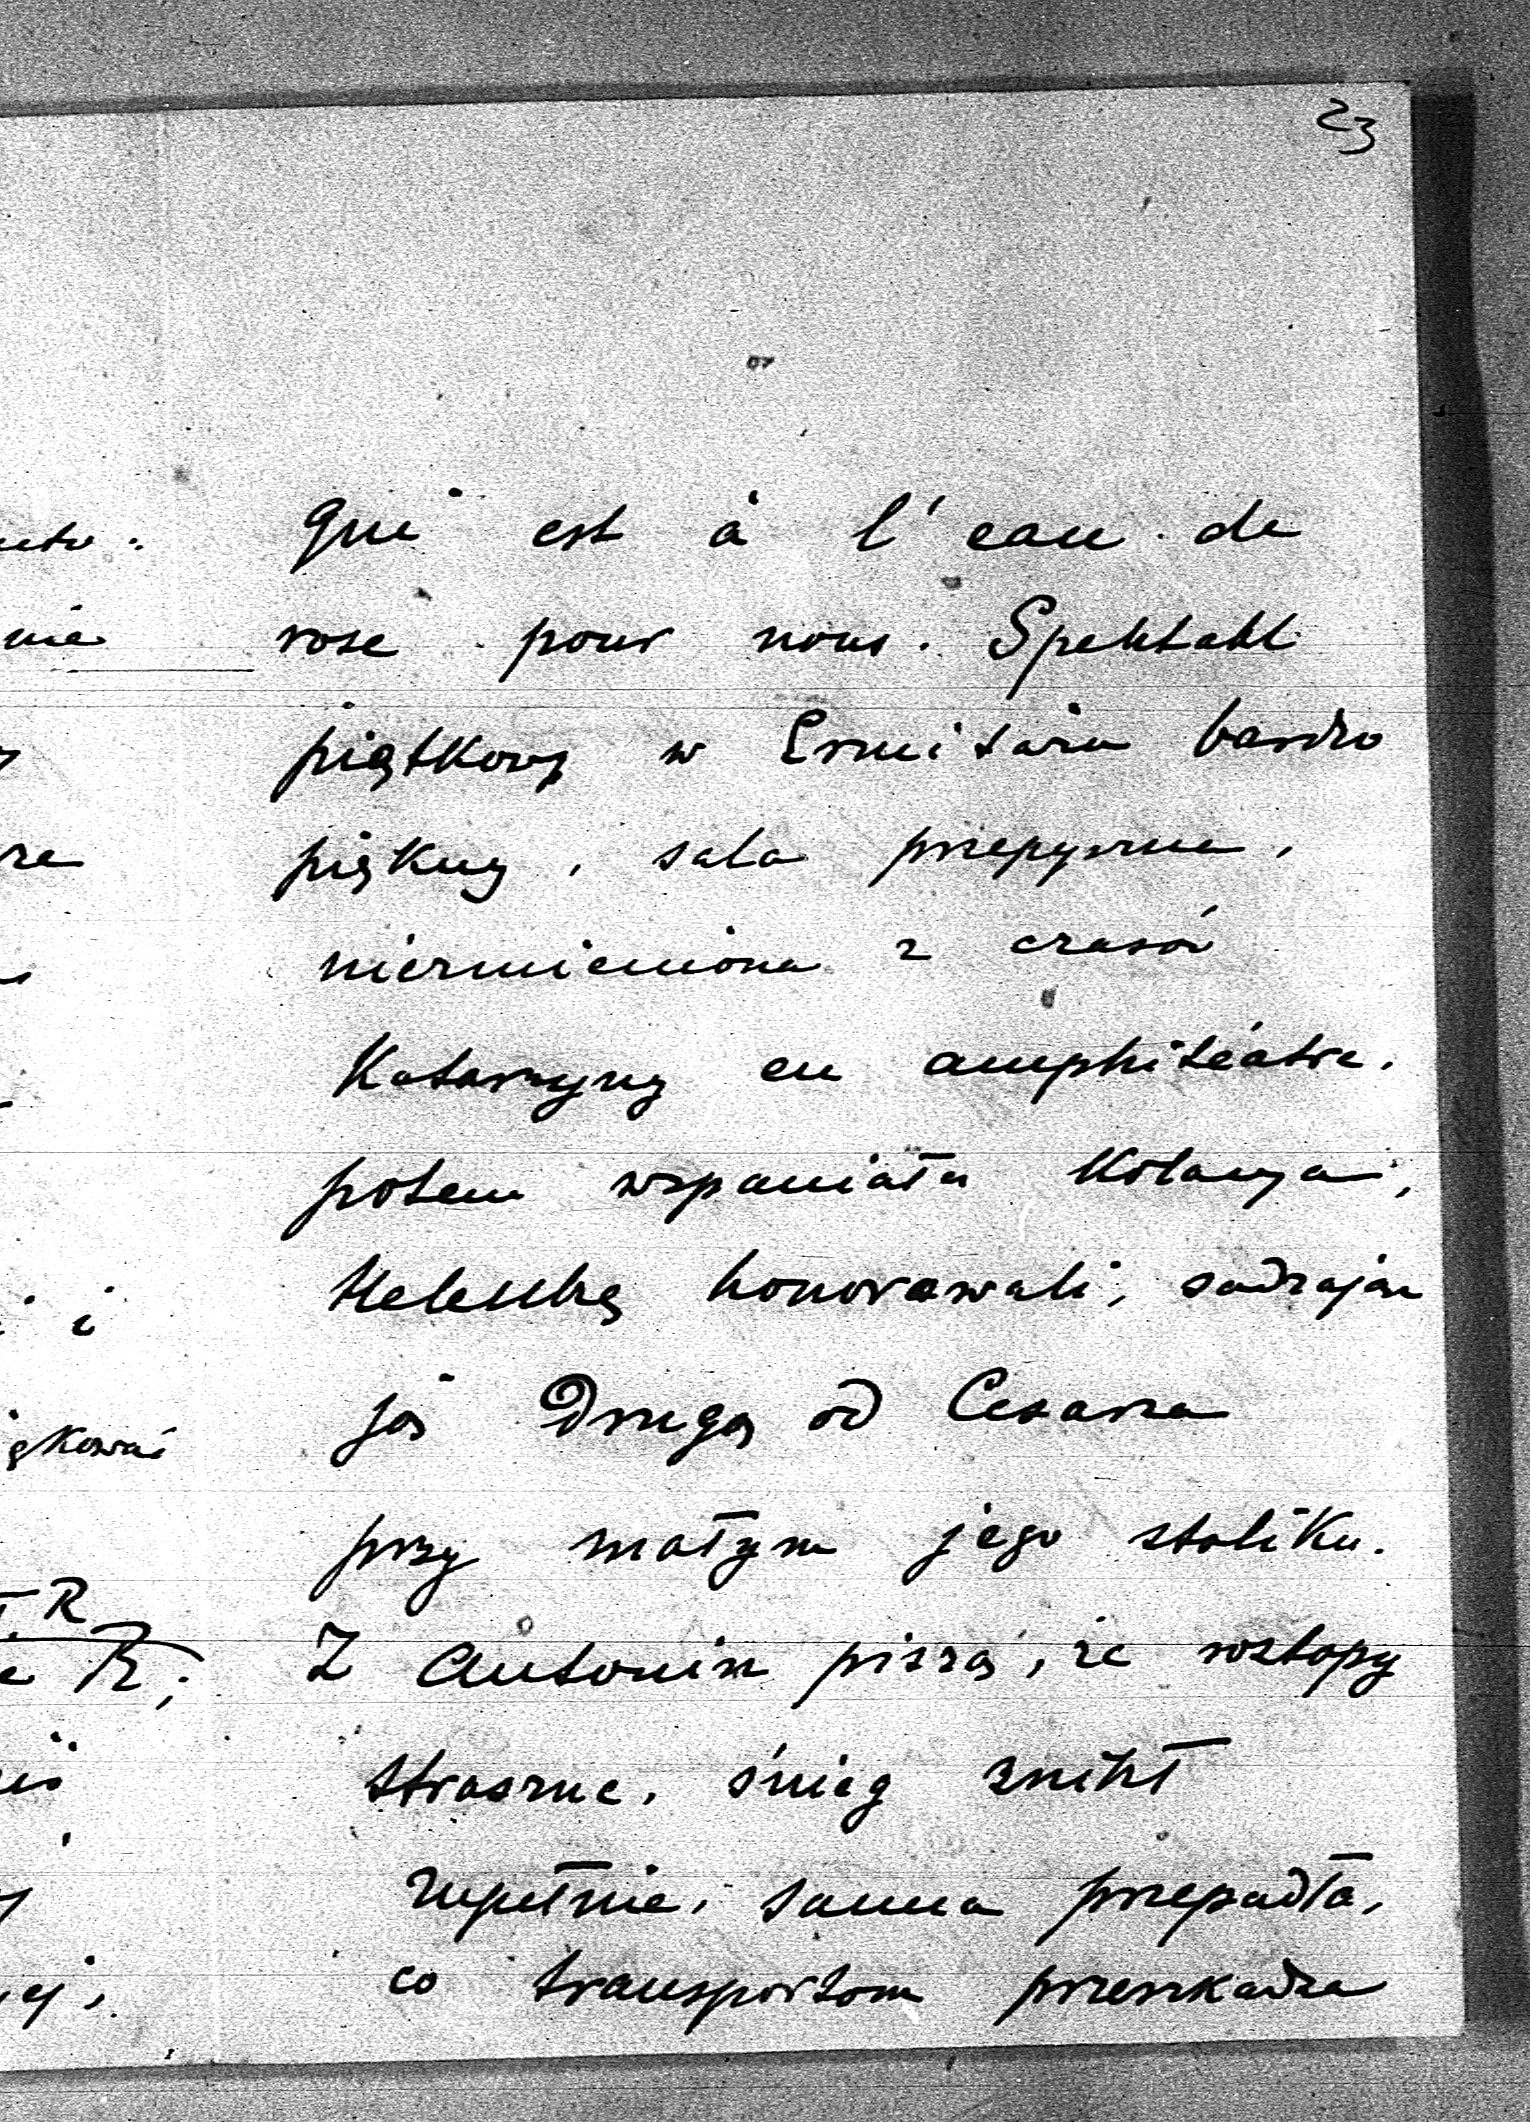 23
qui est à l'eau de
rose pour nous. Spektakl
piątkowy w Ermitażu bardzo
piękny, sala przepyszna,
niezmieniona z czasów
Katarzyny en amphitéatre.
potem wspaniała kolacya,
Helenkę honorowali, sadzając
ją drugą od Cesarza
przy małym jego stoliku.
Z Antonin piszą, że roztopy
straszne, śnieg znikł
zupełnie, sanna przepadła,
co transportom przeszkadza
nie
i i
R
R;